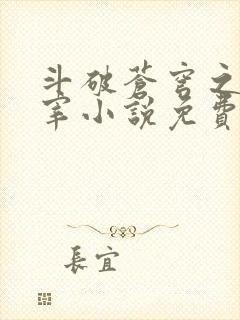 斗破蒼穹之
宰小說免費
長宜